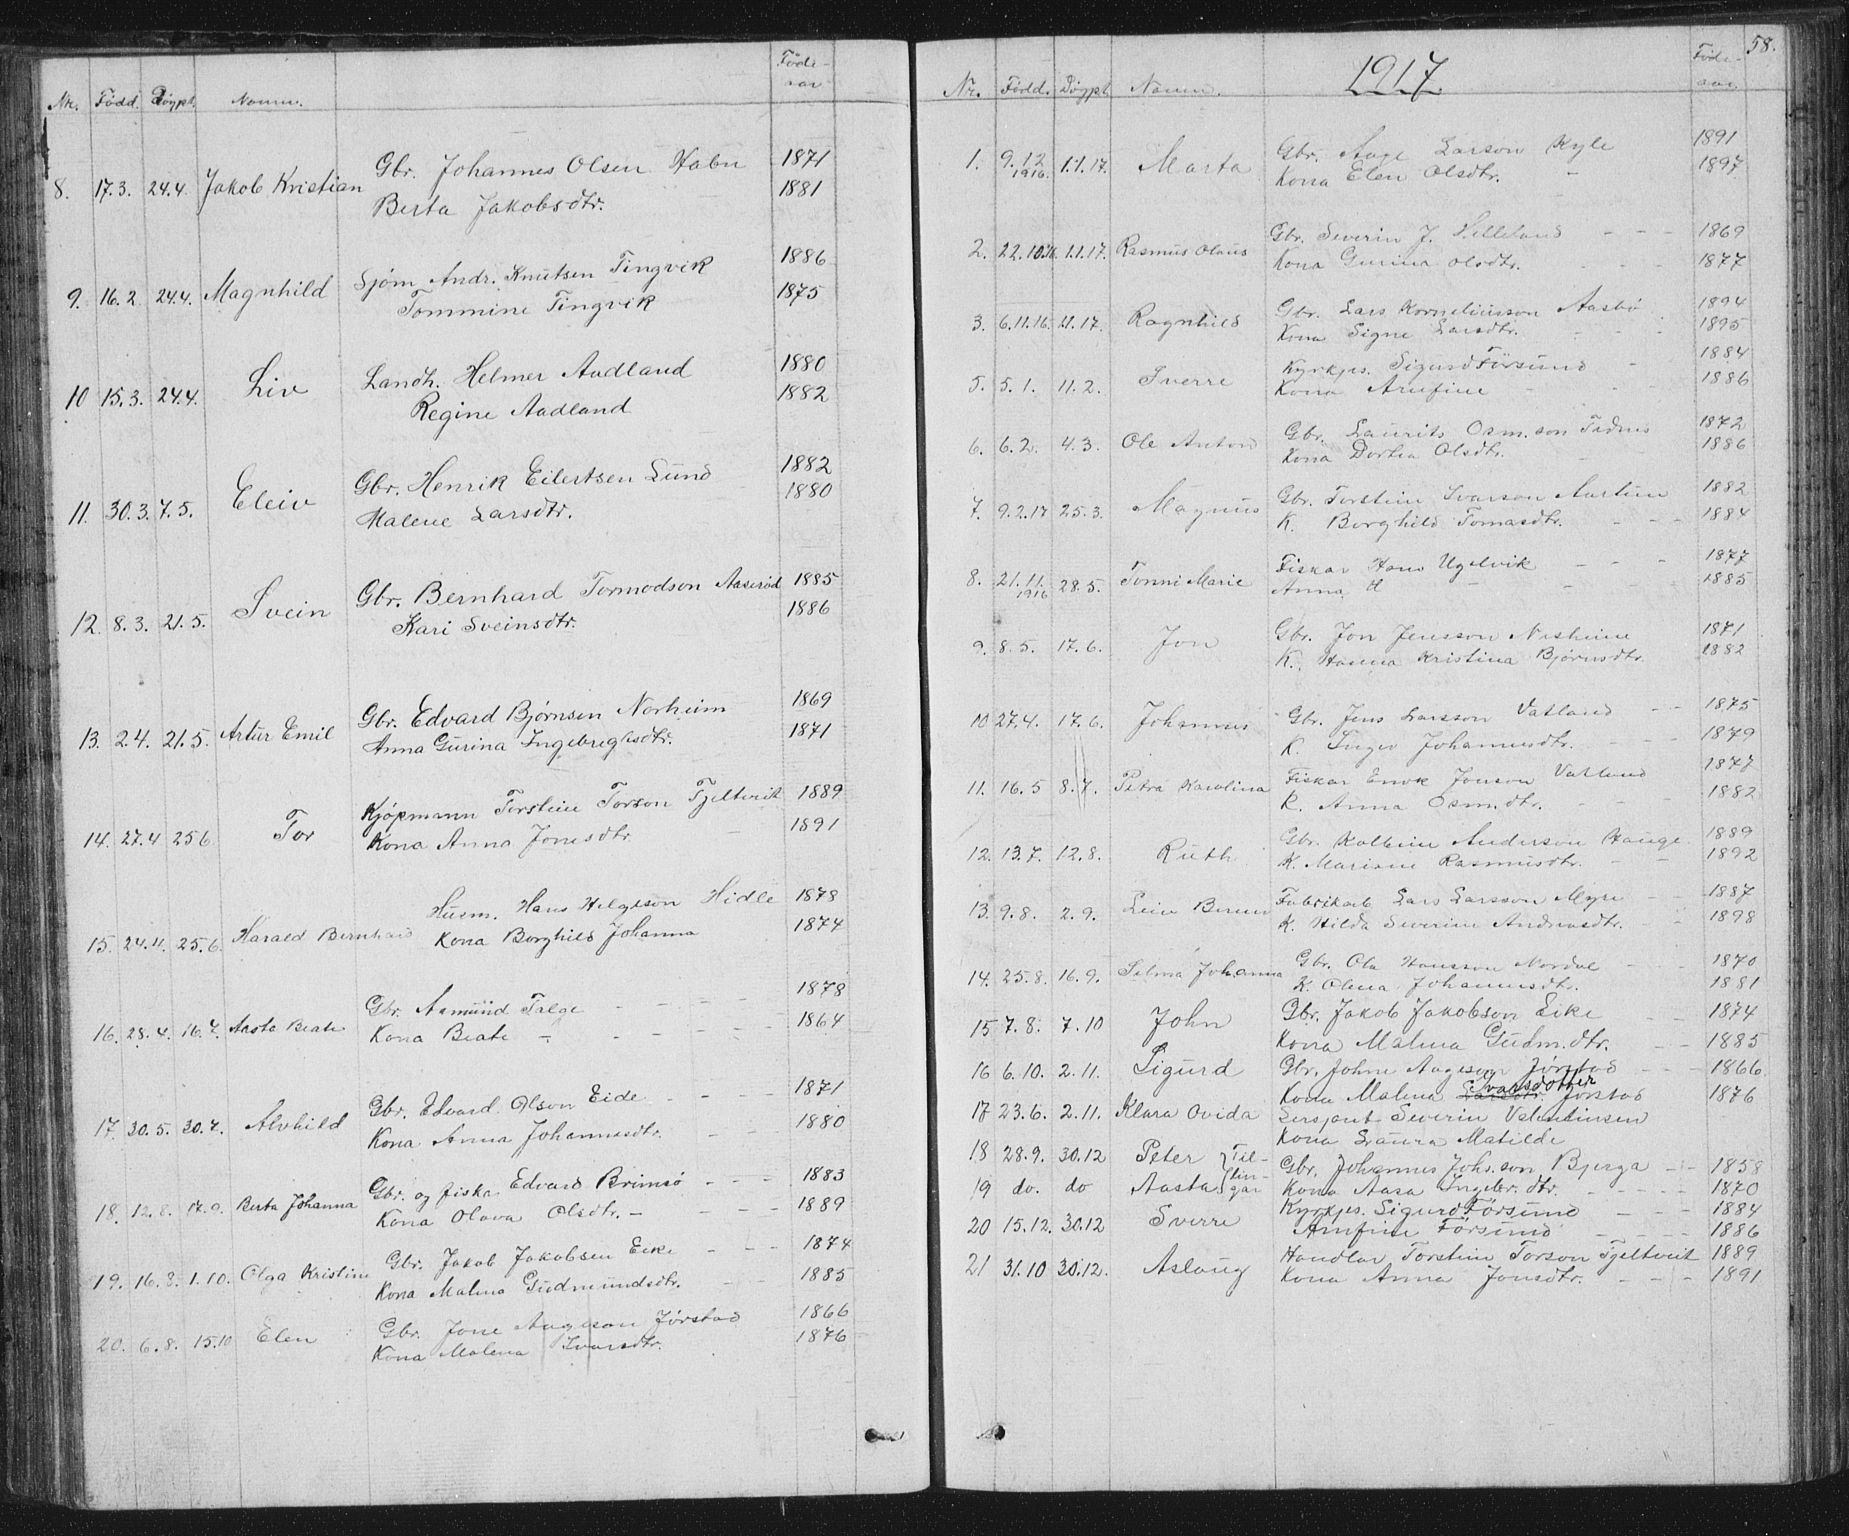 Nr. Född. Döypt. Namn. Föde-
aar
8. 17.3. 24.4. Jakob Kristian Gbr. Johannes Olsen Habn 1871
Berta Jakobsdtr. 1881
9. 16.2. 24.4. Magnhild Sjøm. Andr. Knutsen Tingvik 1886
Tommine Tingvik 1875
10 15.3. 24.4. Liv Landh. Helmer Aadland 1880
Regine Aadland 1882
11. 30.3. 7.5. Eleiv Gbr. Henrik Eilertsen Lund 1882
Malene Larsdtr. 1880
12. 8.3. 21.5. Svein Gbr. Bernhard Tormodson Aaserød 1885
Kari Sveinsdtr. 1886
13. 2.4. 21.5. Artur Emil Gbr. Edvard Bjørnsen Norheim 1869
Anna Gurina Ingebregtsdtr. 1871
14. 27.4 25 6 Tor Kjøpmann Torstein Torson Tjeltveit 1889
Kona Anna Jonsdtr. 1891
15. 24.4. 25.6. Harald Bernhard Husm. Hans Helgeson Hidle 1878
Kona Borghild Johanna 1874
16. 28.4. 16.7. Aasta Beate Gbr. Aamund Talge - - - - 1878
Kona Beate - - - - 1864
17. 30.5. 30.7. Alvhild Gbr. Edvard Olson Eide - - - - 1871
Kona Anna Johannesdtr. - - 1880
18. 12.8. 17.9. Berta Johanna Gbr. og fiskar Edvard Brimsø - - - 1883
Kona Olava Olsdtr. - - - - 1889
19. 16.8. 1.10. Olga Kristine Gbr. Jakob Jakobsen Eike - - - 1874
Kona Malena Gudmundsdtr. - - 1885
20. 6.8. 15.10 Elen Gbr. Jone Aageson Jørstad 1866
Kona Malena Ivarsdtr. 1876
58.
1917.
Nr. Fødd. Döypt. Namn. Föde-
aar.
1. 9.12 1916. 1.1.17. Marta Gbr. Aage Larson Kyle 1891
Kona Elen Olsdtr. - 1897
2. 22.10.16. 1.1.17. Rasmus Olaus Gbr. Severin J. Helleland - - - 1869
Kona Gurina Olsdtr. - - - 1877
3. 6.11.16. 1.1.17. Ragnhild Gbr. Lars Korneliusson Aasbø 1894
Kona Signe Larsdtr. - - - 1895
5. 5.1. 11.2. Sverre Kyrkjes. Sigurd Försund - 1884
Kona Arnfine - - 1886
6. 6.2. 4.3. Ole Anton Gbr. Laurits Osm.son Tednes 1872
Kona Dortea Olsdtr. - 1886
7. 9.2.17 25.3. Magnus Gbr. Torstein Ivarson Aartun 1882
K. Borghild Tomasdtr. - - - 1884
8. 21.11. 1916 28.5. Tonni Marie Fiskar Hans Ugelvik - - - 1877
Anna d - - - 1885
9. 8.5. 17.6. Jon Gbr. Jon Jensson Nesheim 1871
K. Hanna Kristina Bjørnsdtr. 1882
10 27.4. 17.6. Johannes Gbr. Jens Larsson Vatland - - 1875
K. Inger Johannesdtr. - - - 1879
11. 16.5 8.7. Petra Karolina Fiskar Enok Jonson Vatland 1877
K. Anna Osm.dtr. - - - 1882
12. 13.7. 12.8. Ruth Gbr. Kolbein Anderson Hauge 1889
K. Mariane Rasmusdtr. - - 1892
13. 9.8. 2.9. Leiv Berner Fabrikarb Lars Larsson Myre - - 1887
K. Hilda Severine Andreasdtr. - - 1898
14. 25.8. 16.9. Selma Johanna Gbr. Ola Hansson Nordal - - 1870
K. Olena Johannesdtr. 1881
15 7.8. 7.10 John Gbr. Jakob Jakobson Eike - - 1874
Kona Malena Gudm.dtr. - - 1885
16 6.10. 2.11. Sigurd Gbr. Johne Aageson Jørstad - - 1866
Ivarsdotter
Kona Malena Larsdtr. Jørstad 1876
17 23.6. 2.11. Klara Ovida Sersjant Severin Valentinsen
Kona Laura Matilde
18 28.9. 30.12 Peter Tvil- Gbr. Johannes Johs.son Bjerga - - 1858
19 do. do Aasta lin- gar Kona Aasa Ingebr.dtr. - - - - 1870
20 15.12. 30.12 Sverre Kyrkjes. Sigurd Försund - - - 1884
Arnfine Försund - - - - 1886
21 31.10 30.12. Aslaug Handlar Torstein Torson Tjeltveit 1889
Kona Anna Jonsdtr. - - - - 1891